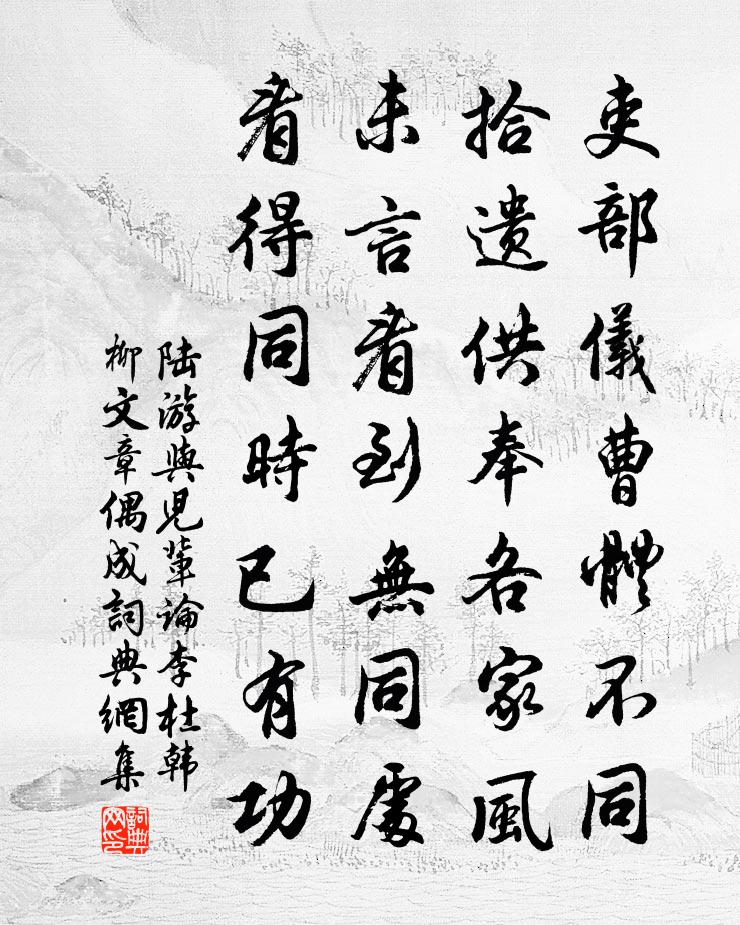 吏部儀曹體不同
拾遺供奉各家風
未言看到無同處
看得同時已有功
陸游與兒輩論李杜韓
柳文章偶成詞典網集
詞典网印